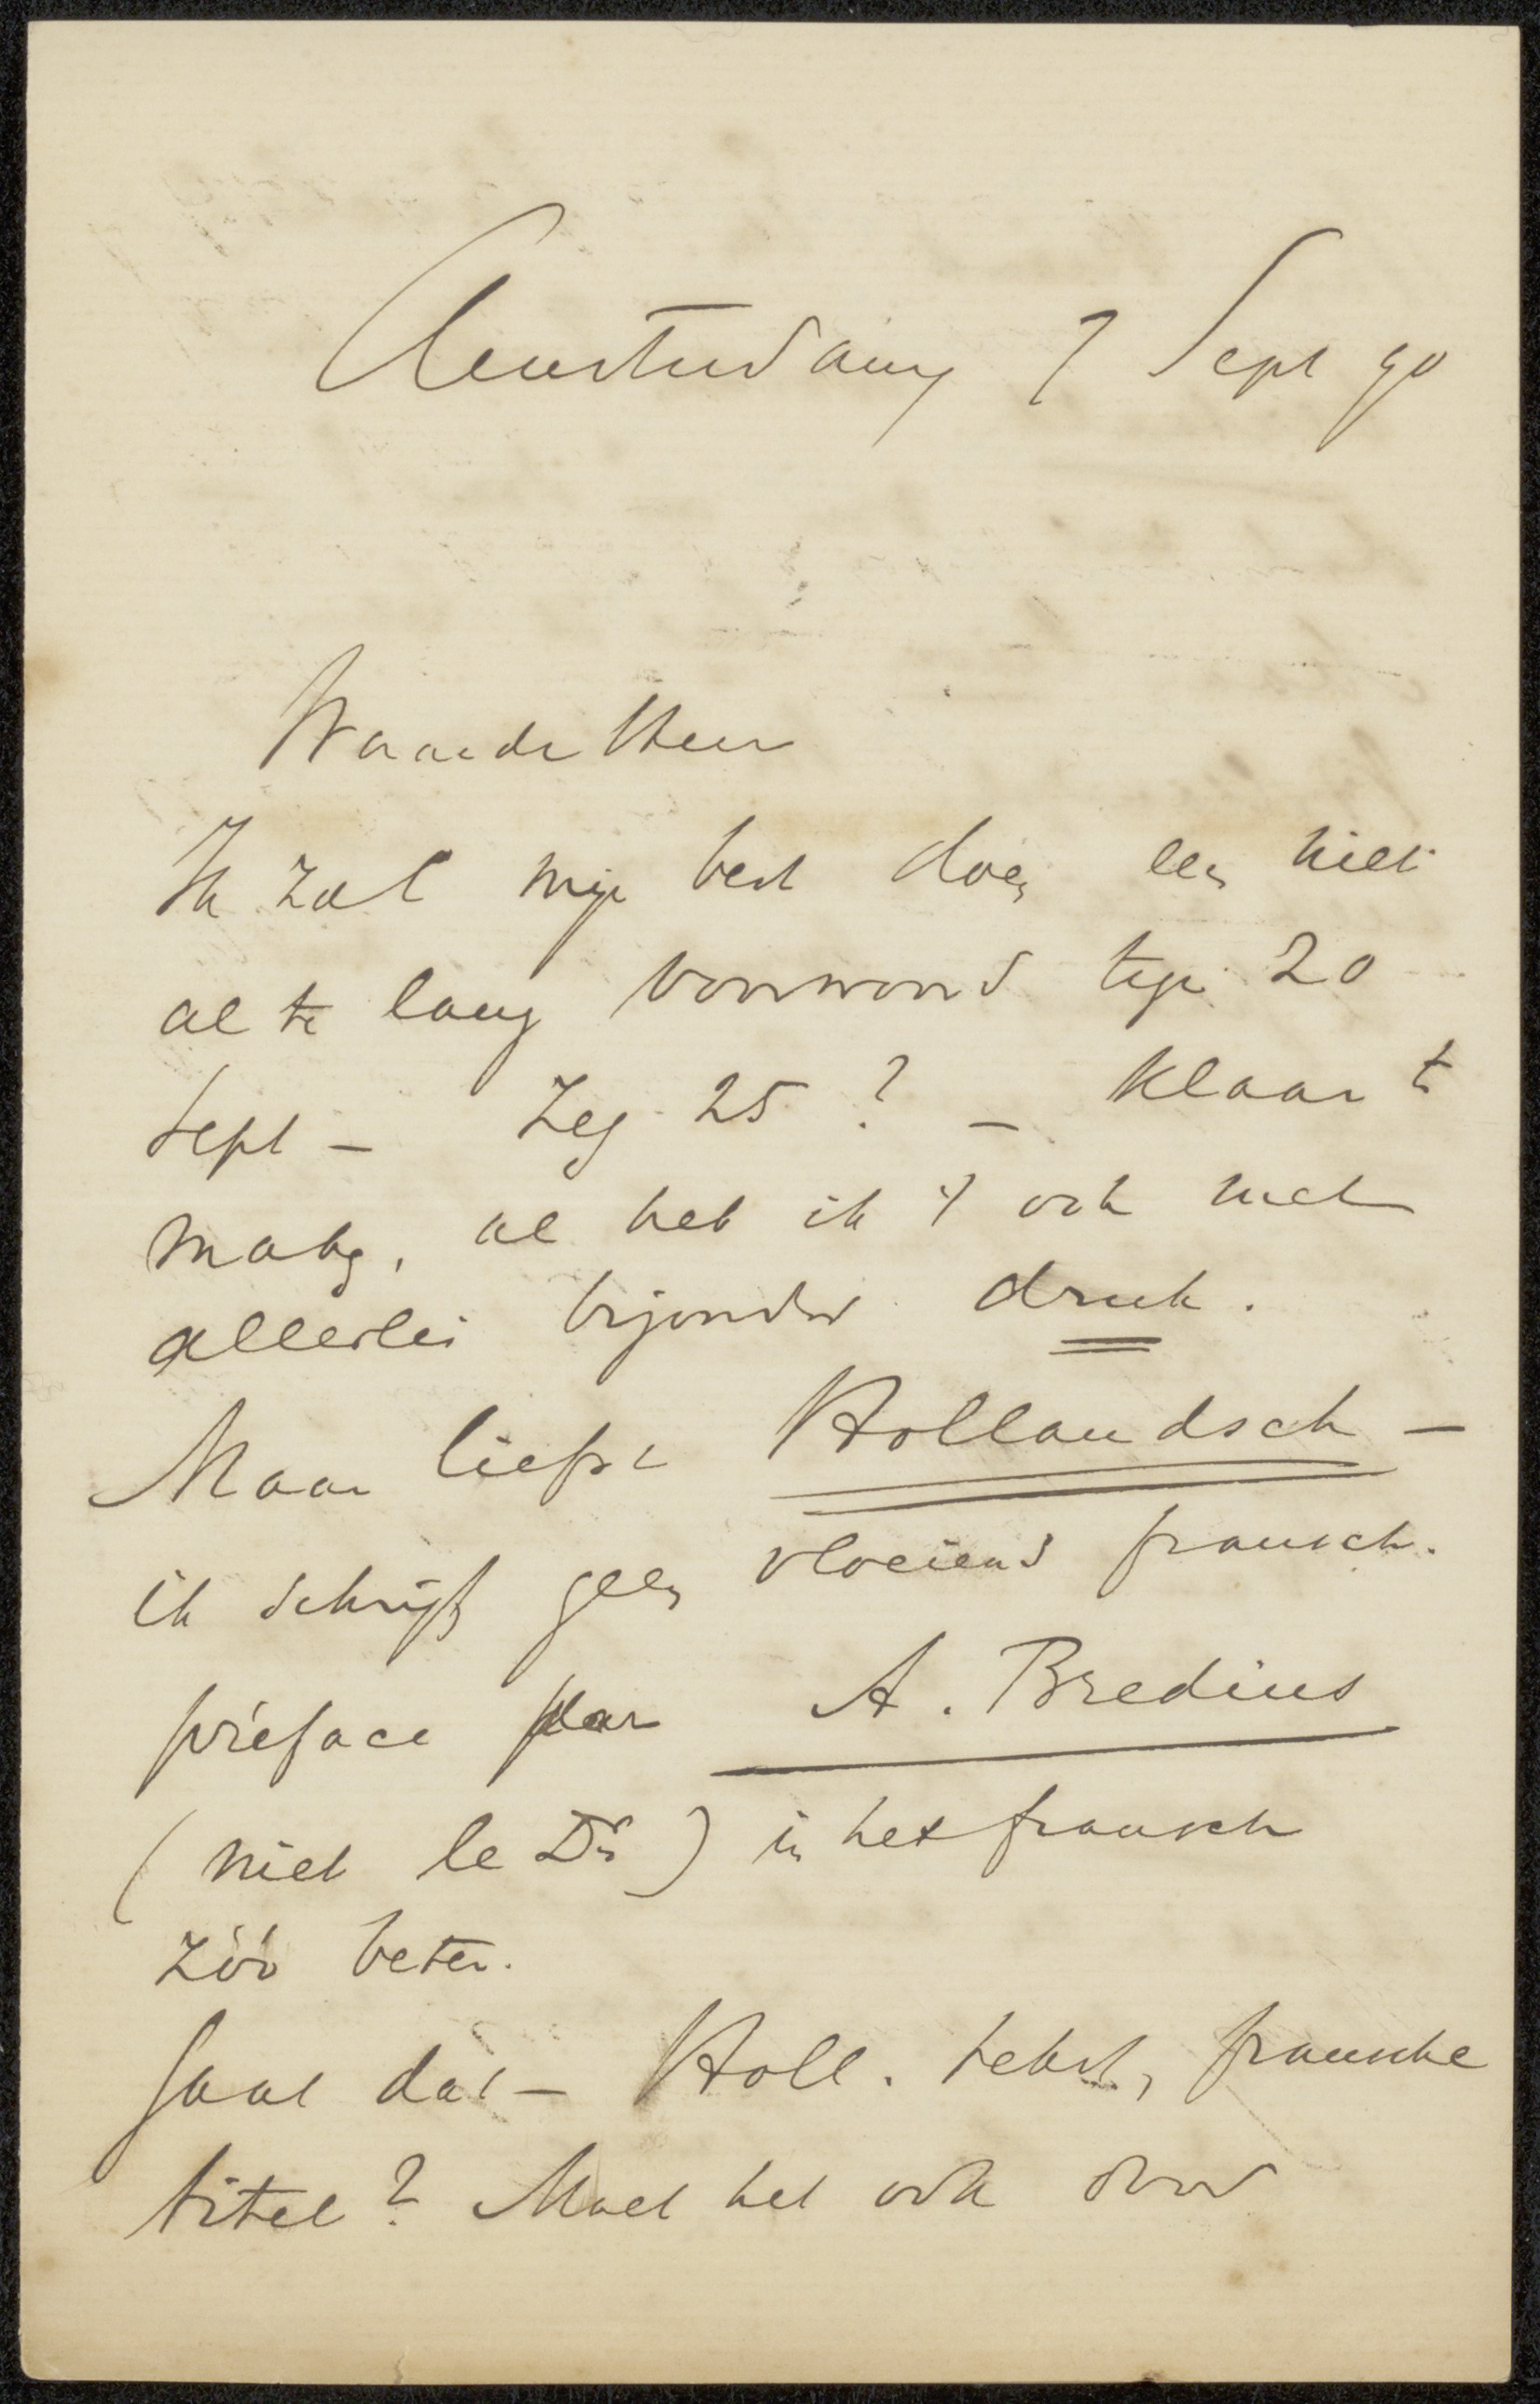 Amsterdam 7 Sept 90
Waarde Heer
Ik zal mijn best doen een niet
al te lang voorwoord tegen 20
Sept – Zeg 25? – klaar te
maken, al heb ik 't ook met
allerlei bijzonder druk.
Maar liefst Hollandsch –
ik schrijf geen vloeiend fransch.
préface par A. Bredius
(niet le Dr) in het fransch
zóó beter.
Gaat dat – Holl. tekst, fransche
titel? Moet het ook door